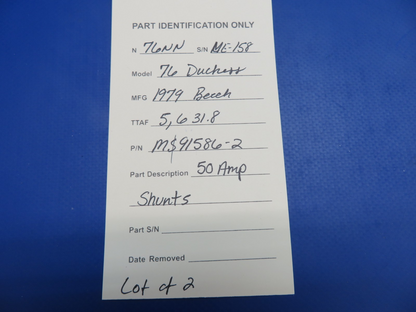 PART IDENTIFICATION ONLY
N 76NN S/N ME-158
Model 76 Duchess
MFG 1979 Beech
TTAF 5,631.8
P/N MS91586-2
Part Description 50 Amp
Shunts
Part S/N
Date Removed
Lot of 2